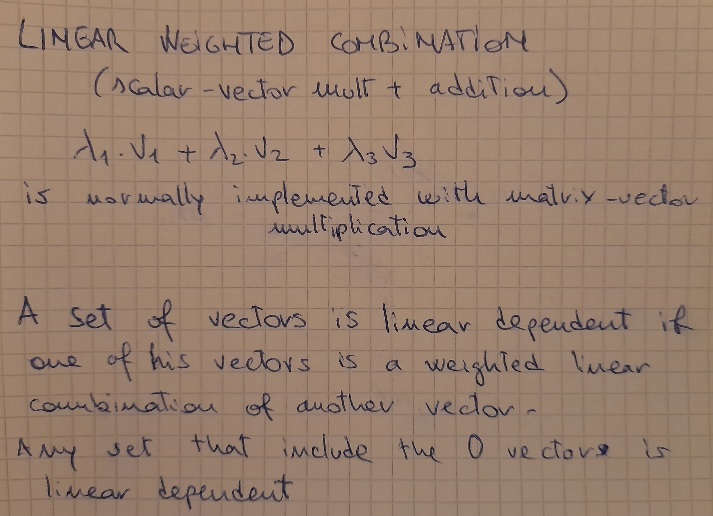 LINEAR WEIGHTED COMBINATION
(scalar-vector mult + addition)
λ1·V1 + λ2·V2 + λ3 V3
is normally implemented with matrix-vector
multiplication
A set of vectors is linear dependent if
one of his vectors is a weighted linear
combination of another vector.
Any set that include the 0 vectors is
linear dependent